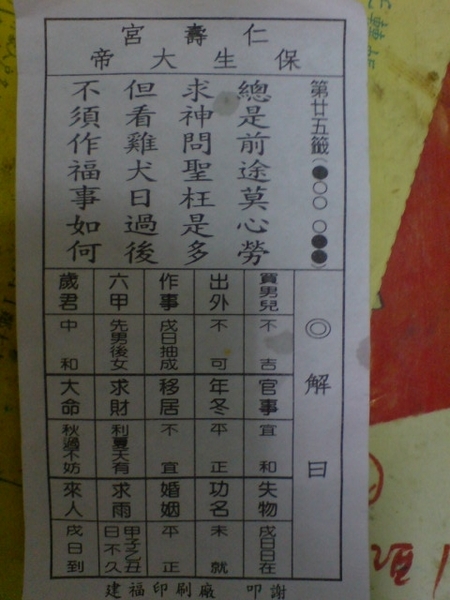 仁壽宮
保生大帝
第廿五籤（●○○ ○●●）
總是前途莫心勞
求神問聖枉是多
但看雞犬日過後
不須作福事如何
◎解曰
買男兒 不吉
官事 宜和
失物 戌日日在
出外 不可
年冬 平正
功名 未就
作事 戌日抽成
移居 不宜
婚姻 平正
六甲 先男後女
求財 利夏天有
求雨 甲子乙丑日不久
歲君 中和
大命 秋過不妨
來人 戌日到
建福印刷廠 叩謝